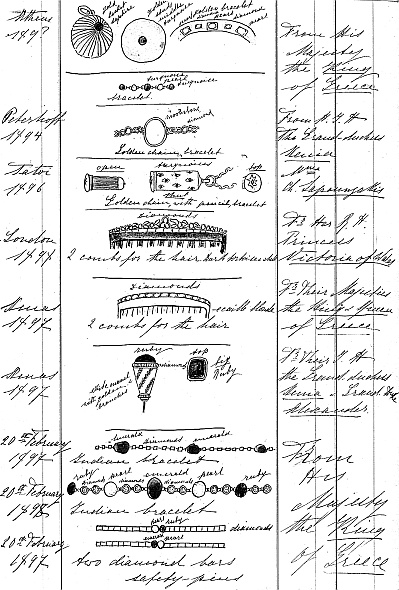 Athens
189?
golden
From His
Majesty
the King
of Greece
turquoise
pearl
turquoise
bracelet.
Peterhoff
1894
moonstone
diamond
Golden chain, bracelet
From H. I. H
the Grand duchess
Xenia
Tatoi
1896
open
turquoises
top
shut
Golden chain, with pencil, bracelet
Mme
London
1897
diamonds
2 combs for the hair. dark
Her R. H.
Princess
Victoria of Wales
Xmas
1897
diamonds
écaille blonde
2 combs for the hair
Their Majesties
the King & Queen
of Greece
Xmas
1897
ruby
diamonds
top
big
ruby
white enamel
with golden
branches
Their I. H
the Grand duchess
Xenia & Grand Duke
Alexander
20th February
1897
emerald
diamonds
emerald
Indian bracelet
20th February
1898
ruby
diamond
pearl
diamonds
emerald
diamonds
pearl
ruby
Indian bracelet
20th February
1897
pearl
ruby
diamonds
pearl
two diamond bars
safety-pins
From
His
Majesty
the King
of Greece